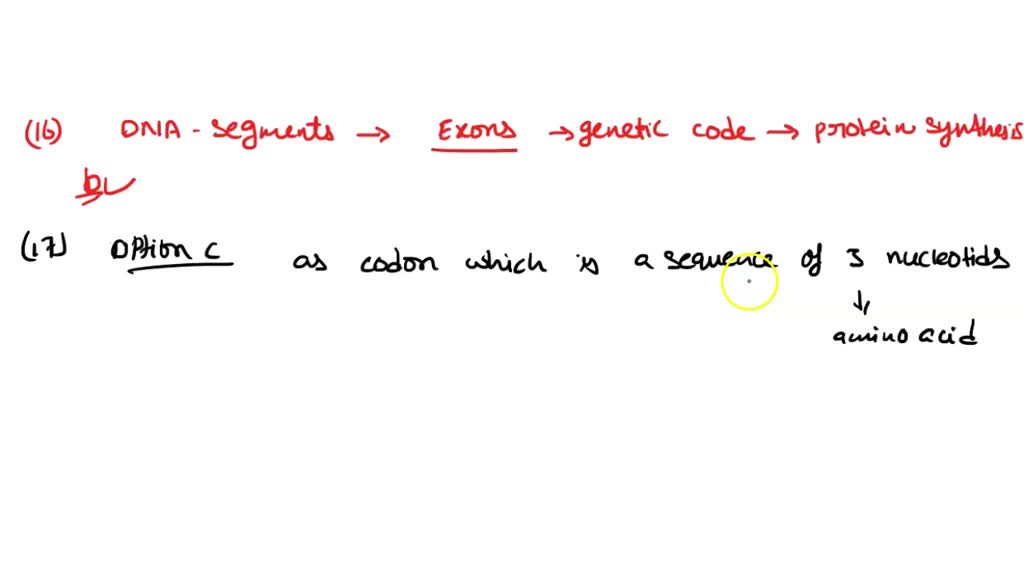 (16) DNA - segments → Exons → genetic code → protein synthesis
b ✓
(17) Option C as codon which is a sequence of 3 nucleotids
↓
amino acid